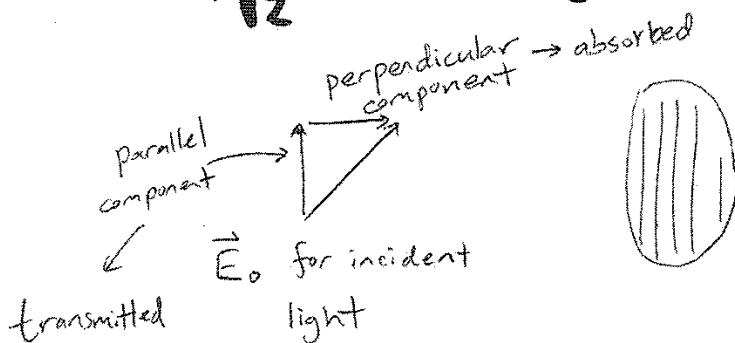 √2
perpendicular
component → absorbed
parallel
component
E⃗₀ for incident
light
transmitted